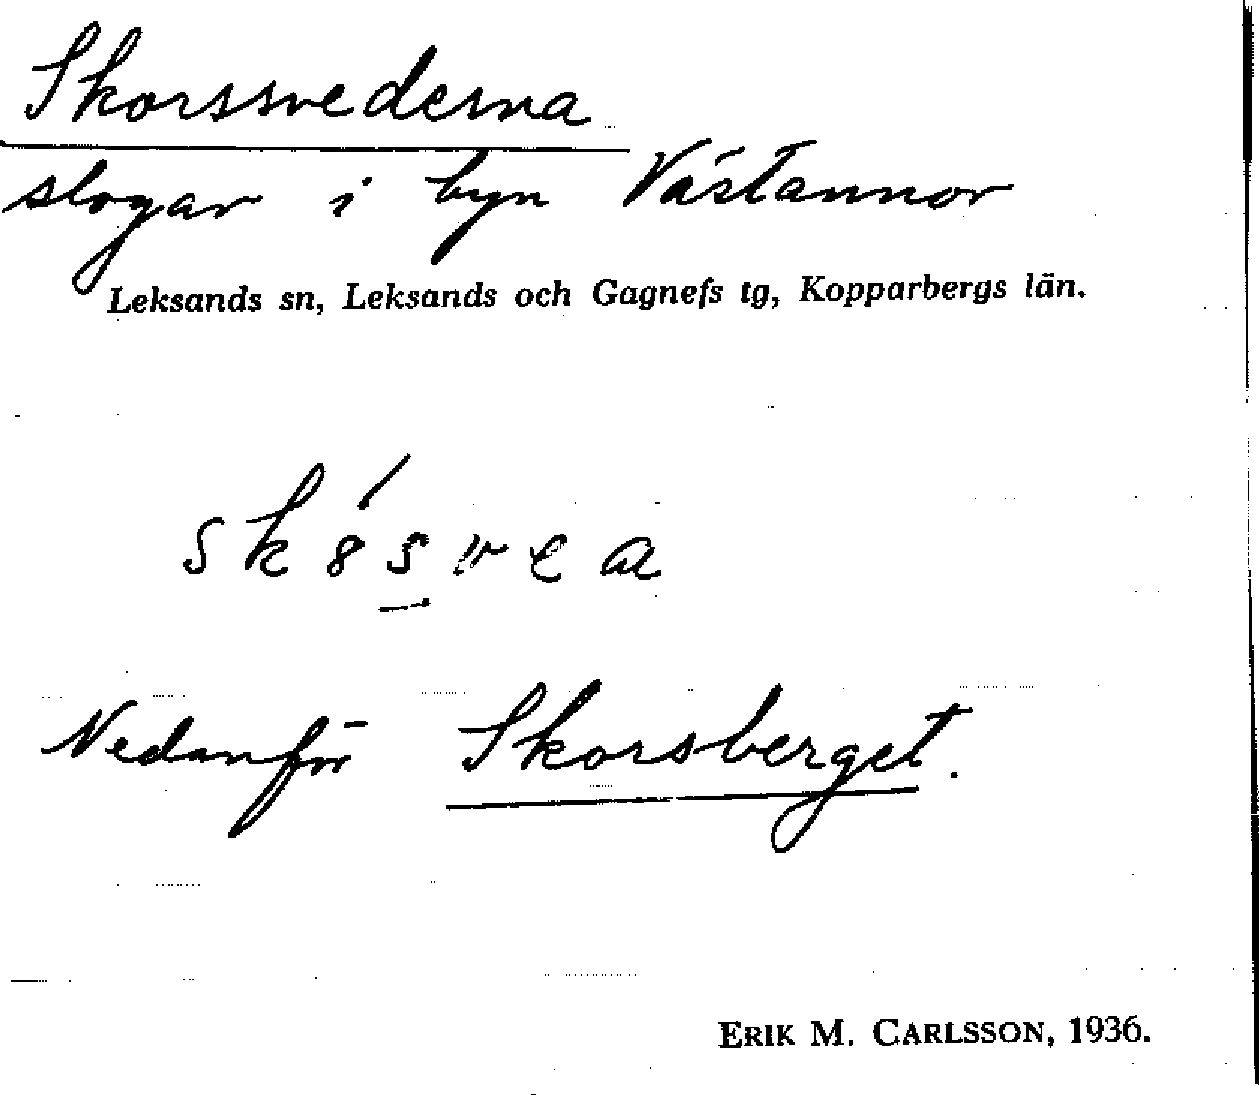 Skorssvederna
slogar i byn Västannor
Leksands sn, Leksands och Gagnefs tg, Kopparbergs län.
sk8́s̠vea
Nedanför Skorsberget.
ERIK M. CARLSSON, 1936.